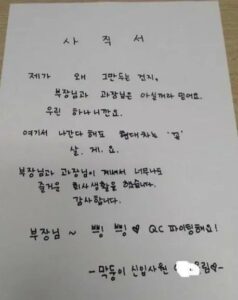 사 직 서
제가 왜 그만두는 건지,
부장님과 과장님은 아실꺼라 믿어요.
우린 하나니깐요.
여기서 나간다해도 꼽대차는 '꼽'
살. 게. 요.
부장님과 과장님이 계셔서 너무나도
즐거운 회사생활을 했습니다.
감사합니다.
부장님 ~ 쁑! 쁑!♡ QC 파이팅해요!
- 막둥이 신입사원 올림♡ -